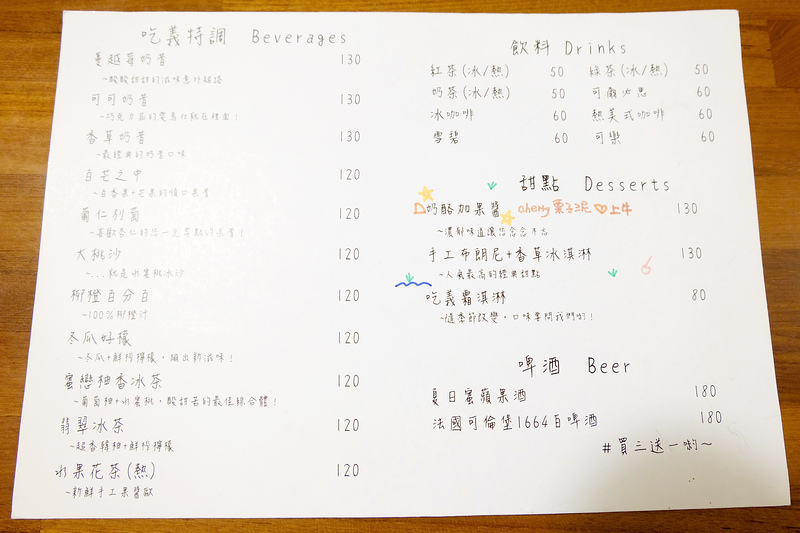 吃義特調 Beverages
蔓越莓奶昔 130
~酸酸甜甜的滋味意外超搭
可可奶昔 130
~巧克力品的驚喜Q就在裡面！
香草奶昔 130
~最經典的奶昔口味
百芒之中 120
~百香果+芒果的順口果昔
蔔仁利菊 120
~喜歡杏仁的您一定要點的
大桃沙 120
~...就是水蜜桃冰沙
柳橙百分百 120
~100%柳橙汁
冬瓜好檬 120
~冬瓜+鮮榨檸檬，蹦出新滋味！
蜜戀柚香冰茶 120
~葡萄柚+水蜜桃，酸甜苦的最佳綜合體！
翡翠冰茶 120
~超香韓柚+鮮榨檸檬
水果花茶(熱) 120
~新鮮手工果醬呦
飲料 Drinks
紅茶(冰/熱) 50 綠茶(冰/熱) 50
奶茶(冰/熱) 50 可爾必思 60
冰咖啡 60 熱美式咖啡 60
雪碧 60 可樂 60
甜點 Desserts
奶酪加果醬 cherry 栗子泥 上牛 130
~濃郁味道讓您念念不忘
手工布朗尼+香草冰淇淋 130
~人氣最高的經典甜點
吃義霜淇淋 80
~隨季節改變，口味要問我們喲！
啤酒 Beer
夏日蜜蘋果酒 180
法國可倫堡1664白啤酒 180
#買三送一喲~